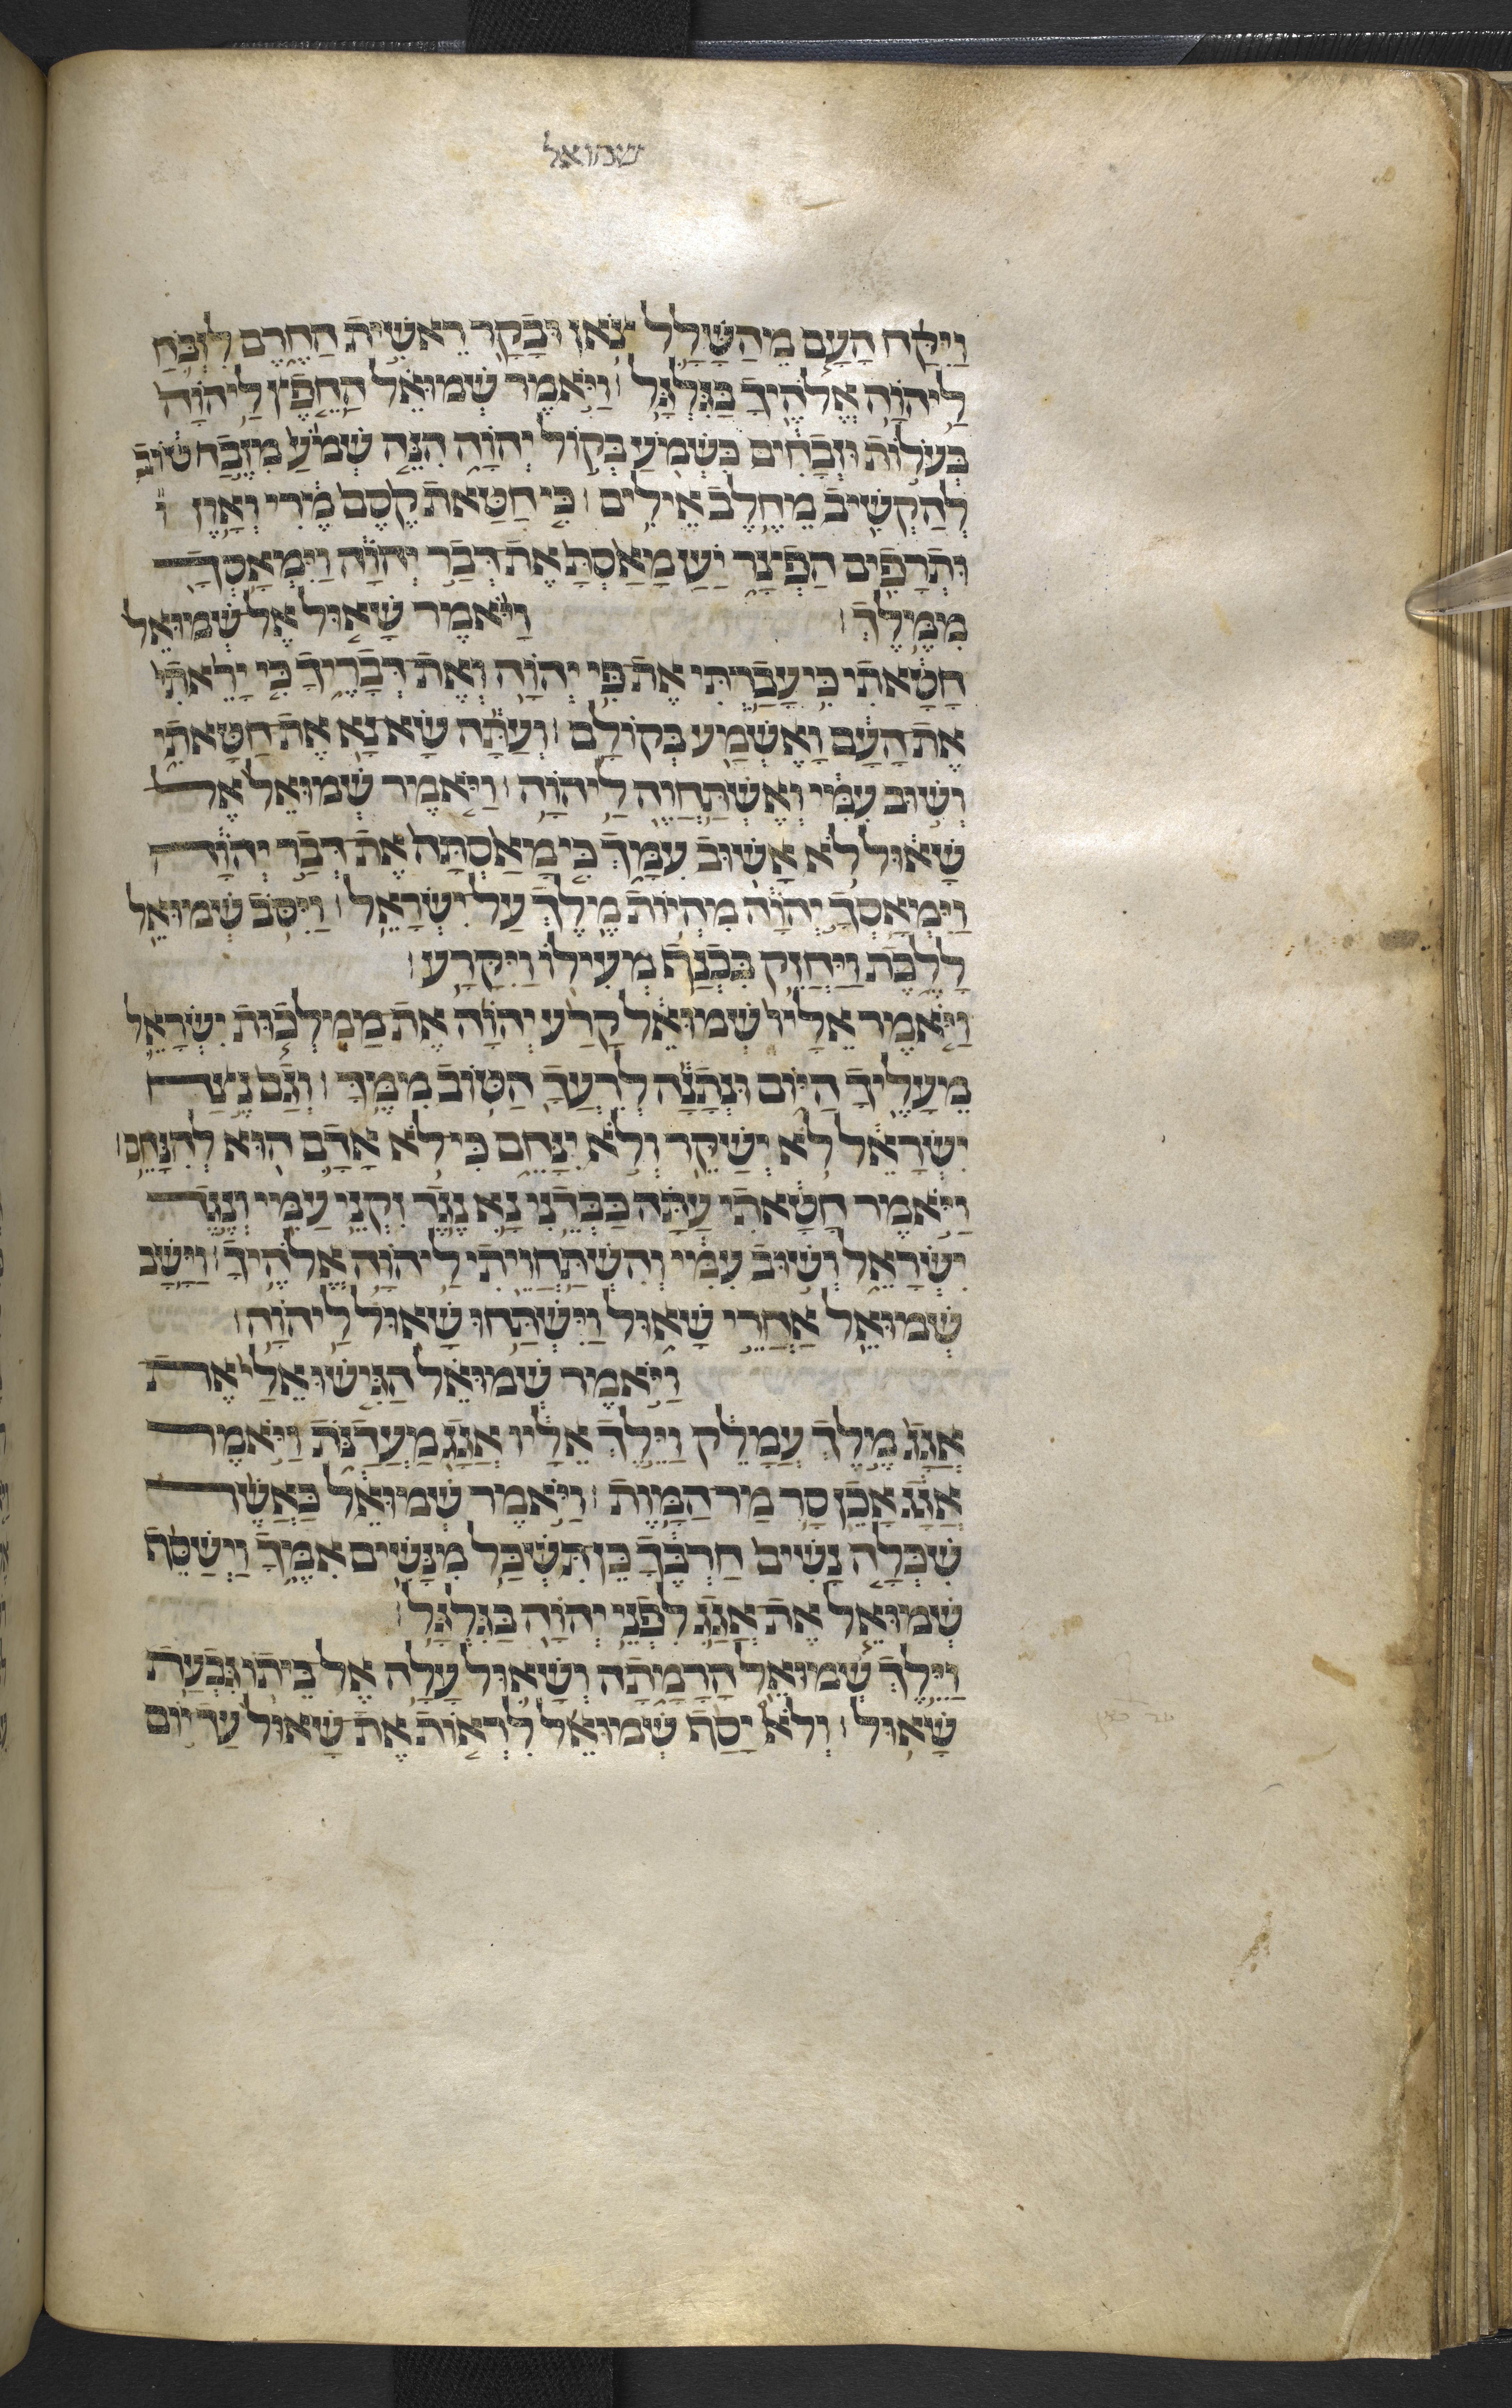 שמואל
וַיִּקַּח הָעָם מֵהַשָּׁלָל צֹאן וּבָקָר רֵאשִׁית הַחֵרֶם לִזְבֹּחַ
לַיהוָה אֱלֹהֶיךָ בַּגִּלְגָּל׃ וַיֹּאמֶר שְׁמוּאֵל הַחֵפֶץ לַיהוָה
בְּעֹלוֹת וּזְבָחִים כִּשְׁמֹעַ בְּקוֹל יְהוָה הִנֵּה שְׁמֹעַ מִזֶּבַח טוֹב
לְהַקְשִׁיב מֵחֵלֶב אֵילִים׃ כִּי חַטַּאת קֶסֶם מֶרִי וְאָוֶן
וּתְרָפִים הַפְצַר יַעַן מָאַסְתָּ אֶת דְּבַר יְהוָה וַיִּמְאָסְךָ
מִמֶּלֶךְ׃ וַיֹּאמֶר שָׁאוּל אֶל שְׁמוּאֵל
חָטָאתִי כִּי עָבַרְתִּי אֶת פִּי יְהוָה וְאֶת דְּבָרֶיךָ כִּי יָרֵאתִי
אֶת הָעָם וָאֶשְׁמַע בְּקוֹלָם׃ וְעַתָּה שָׂא נָא אֶת חַטָּאתִי
וְשׁוּב עִמִּי וְאֶשְׁתַּחֲוֶה לַיהוָה׃ וַיֹּאמֶר שְׁמוּאֵל אֶל
שָׁאוּל לֹא אָשׁוּב עִמָּךְ כִּי מָאַסְתָּה אֶת דְּבַר יְהוָה
וַיִּמְאָסְךָ יְהוָה מִהְיוֹת מֶלֶךְ עַל יִשְׂרָאֵל׃ וַיִּסֹּב שְׁמוּאֵל
לָלֶכֶת וַיַּחֲזֵק בִּכְנַף מְעִילוֹ וַיִּקָּרַע׃
וַיֹּאמֶר אֵלָיו שְׁמוּאֵל קָרַע יְהוָה אֶת מַמְלְכוּת יִשְׂרָאֵל
מֵעָלֶיךָ הַיּוֹם וּנְתָנָהּ לְרֵעֲךָ הַטּוֹב מִמֶּךָּ׃ וְגַם נֵצַח
יִשְׂרָאֵל לֹא יְשַׁקֵּר וְלֹא יִנָּחֵם כִּי לֹא אָדָם הוּא לְהִנָּחֵם׃
וַיֹּאמֶר חָטָאתִי עַתָּה כַּבְּדֵנִי נָא נֶגֶד זִקְנֵי עַמִּי וְנֶגֶד
יִשְׂרָאֵל וְשׁוּב עִמִּי וְהִשְׁתַּחֲוֵיתִי לַיהוָה אֱלֹהֶיךָ׃ וַיָּשָׁב
שְׁמוּאֵל אַחֲרֵי שָׁאוּל וַיִּשְׁתַּחוּ שָׁאוּל לַיהוָה׃
וַיֹּאמֶר שְׁמוּאֵל הַגִּישׁוּ אֵלַי אֶת
אֲגַג מֶלֶךְ עֲמָלֵק וַיֵּלֶךְ אֵלָיו אֲגַג מַעֲדַנֹּת וַיֹּאמֶר
אֲגָג אָכֵן סָר מַר הַמָּוֶת׃ וַיֹּאמֶר שְׁמוּאֵל כַּאֲשֶׁר
שִׁכְּלָה נָשִׁים חַרְבֶּךָ כֵּן תִּשְׁכַּל מִנָּשִׁים אִמֶּךָ וַיְשַׁסֵּף
שְׁמוּאֵל אֶת אֲגָג לִפְנֵי יְהוָה בַּגִּלְגָּל׃
וַיֵּלֶךְ שְׁמוּאֵל הָרָמָתָה וְשָׁאוּל עָלָה אֶל בֵּיתוֹ גִּבְעַת
שָׁאוּל׃ וְלֹא יָסַף שְׁמוּאֵל לִרְאוֹת אֶת שָׁאוּל עַד יוֹם
עד כאן